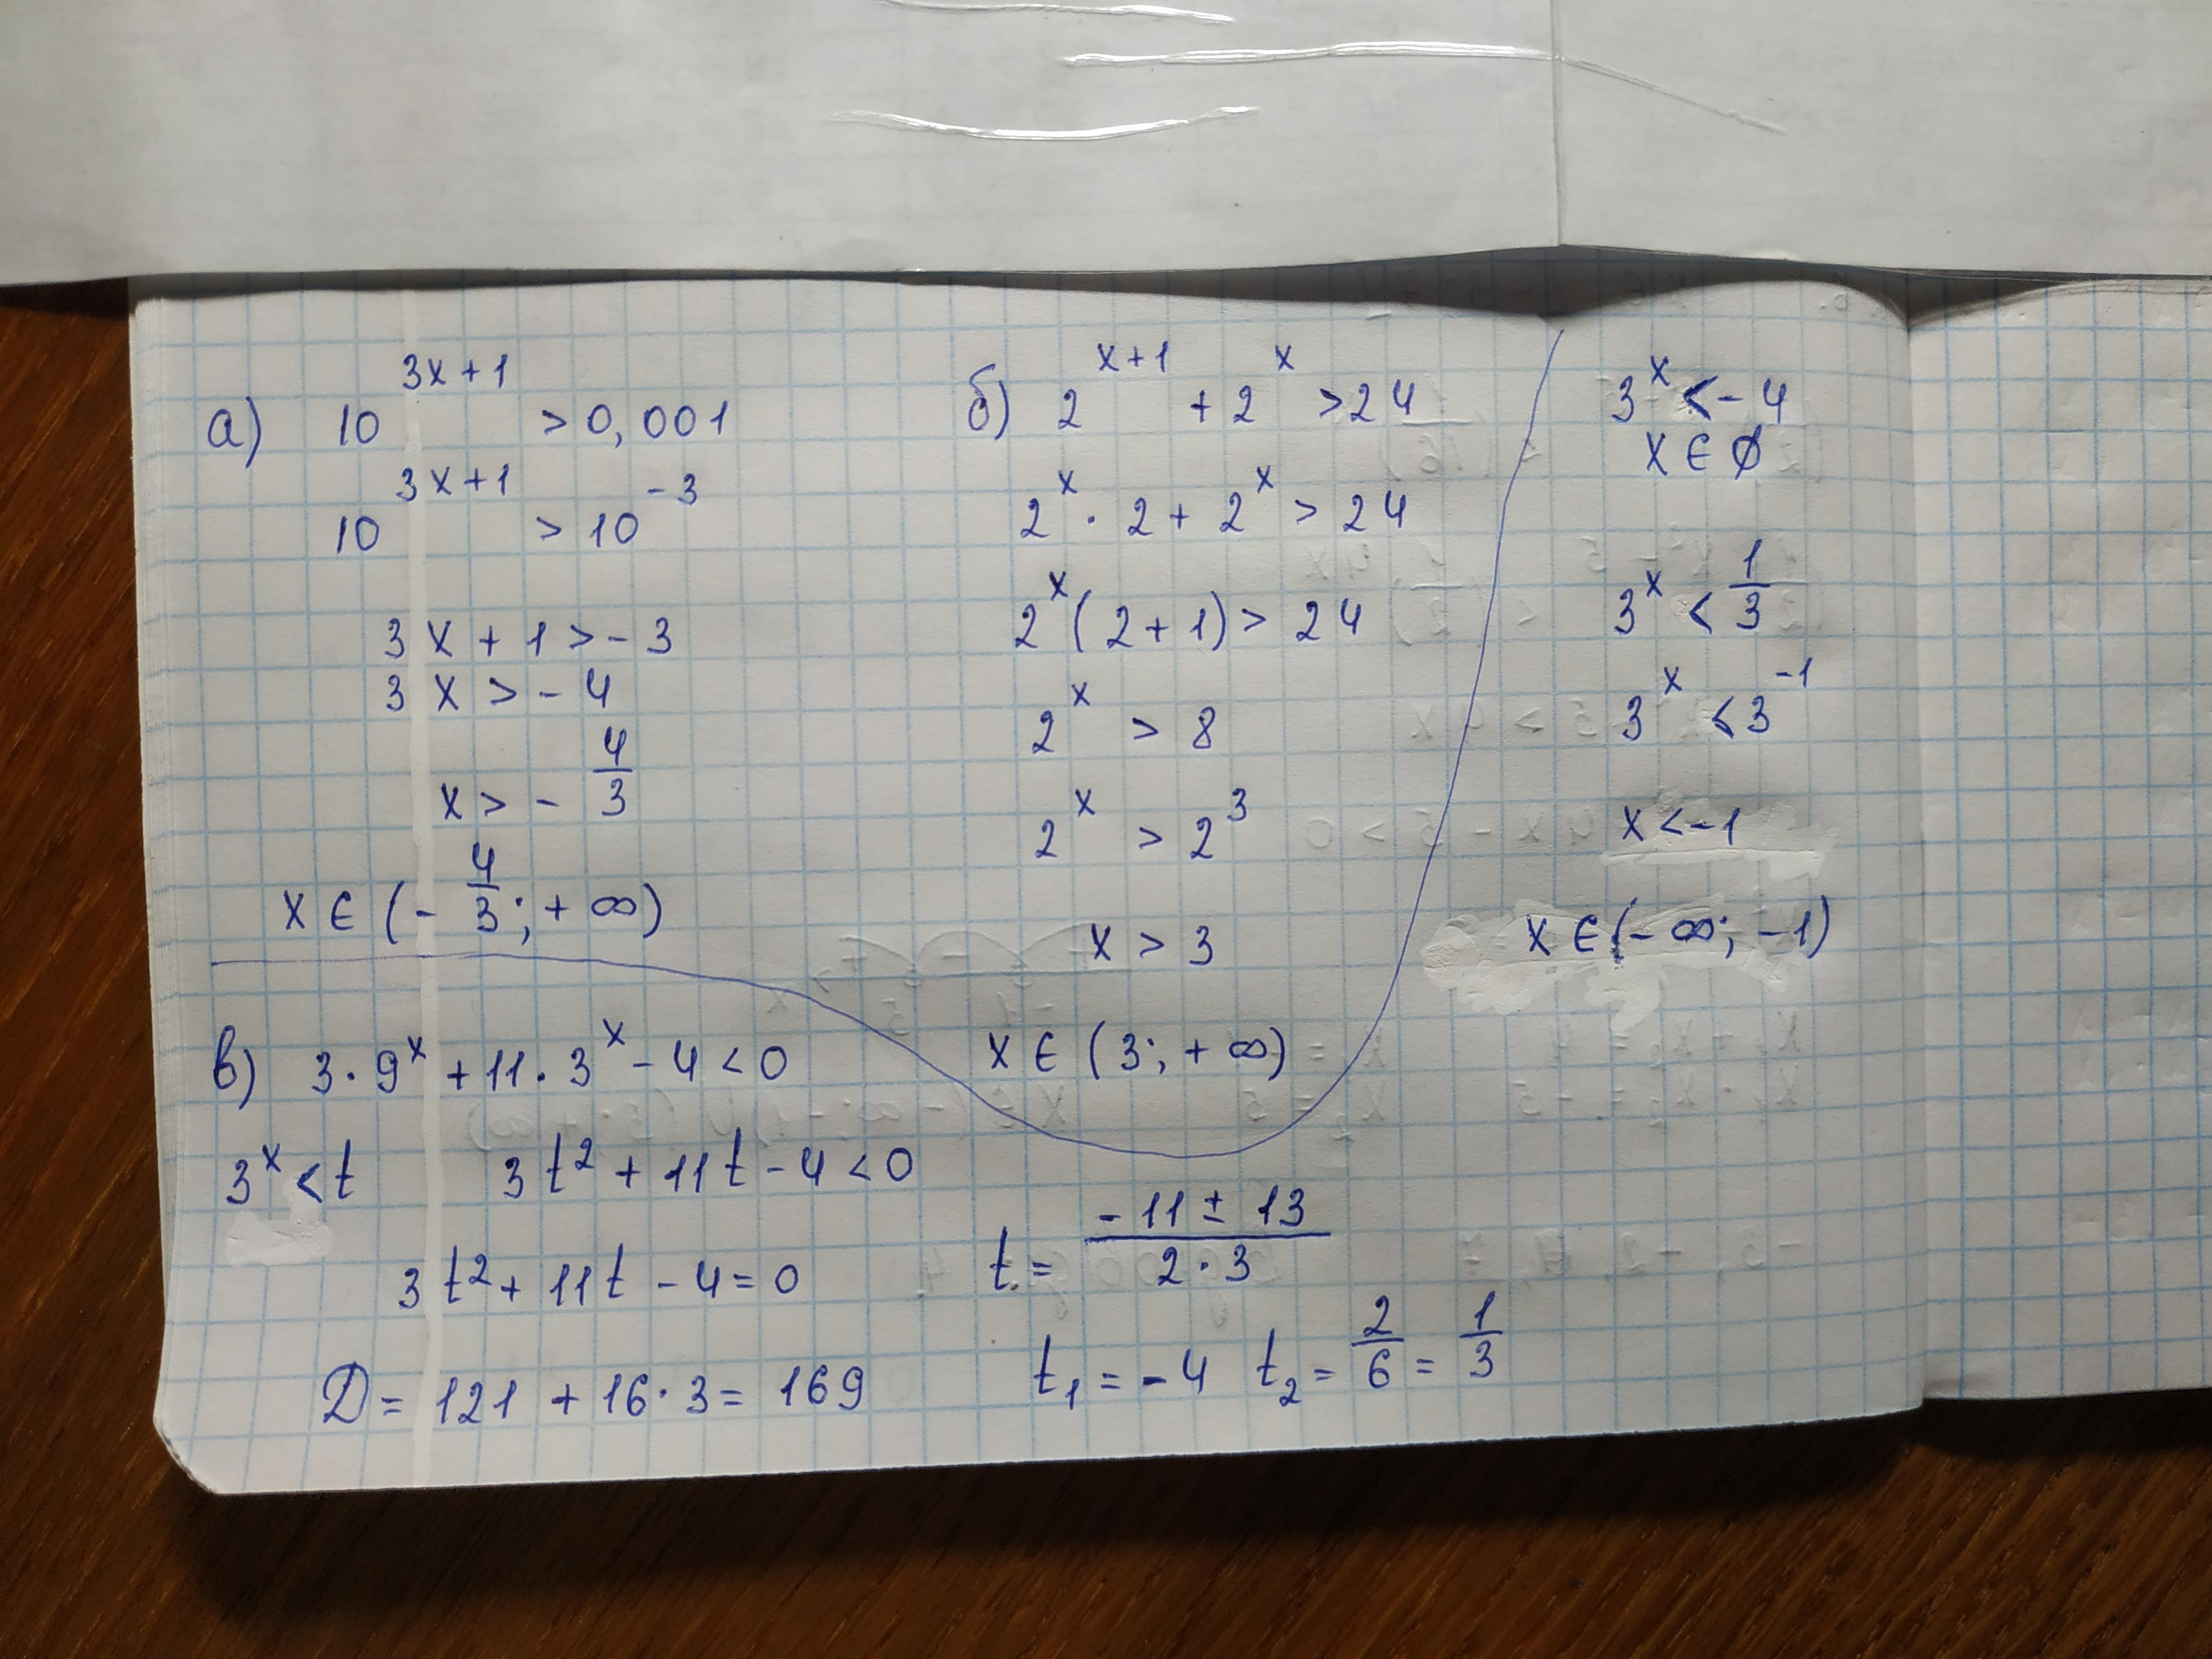 а) 10^{3x+1} > 0,001
10^{3x+1} > 10^{-3}
3x + 1 > -3
3x > -4
x > -\frac{4}{3}
x ∈ (-\frac{4}{3}; +∞)
б) 2^{x+1} + 2^x > 24
2^x · 2 + 2^x > 24
2^x (2 + 1) > 24
2^x > 8
2^x > 2^3
x > 3
x ∈ (3; +∞)
в) 3 · 9^x + 11 · 3^x - 4 < 0
3^x < t 3t² + 11t - 4 < 0
3t² + 11t - 4 = 0
D = 121 + 16 · 3 = 169
t = \frac{-11 ± 13}{2 · 3}
t₁ = -4 t₂ = \frac{2}{6} = \frac{1}{3}
3^x < -4
x ∈ ∅
3^x < \frac{1}{3}
3^x < 3^{-1}
x < -1
x ∈ (-∞; -1)